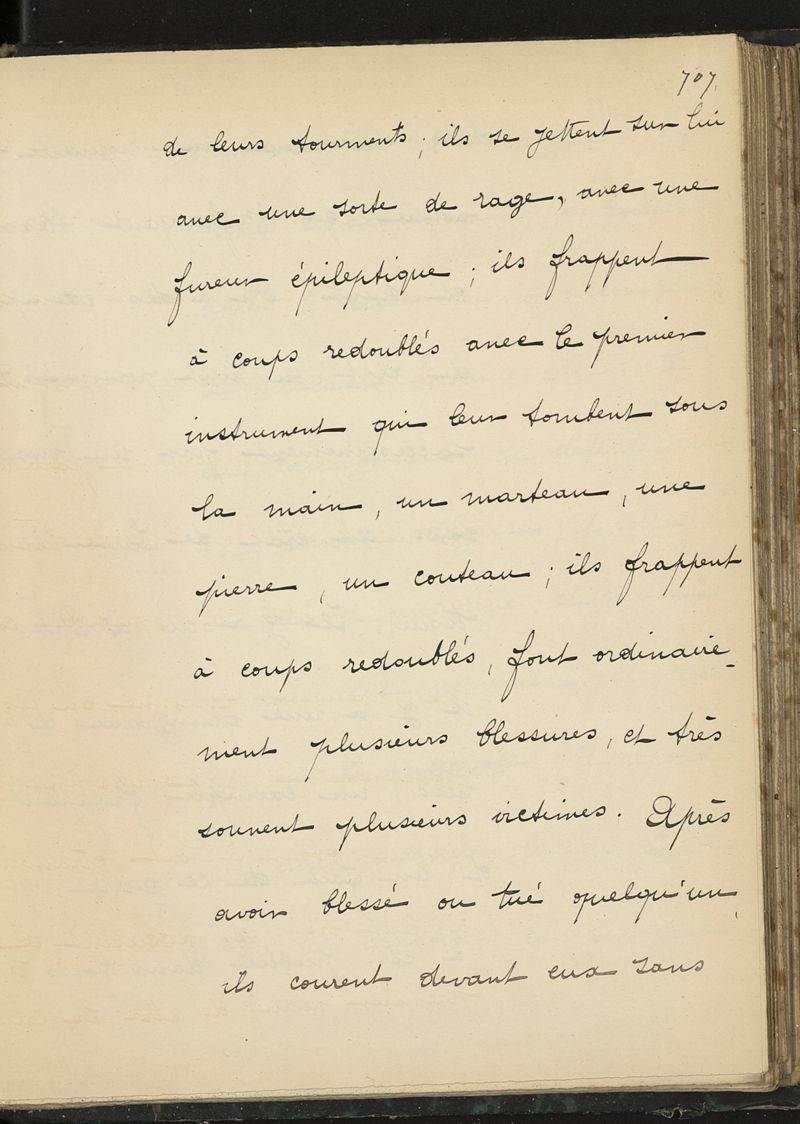 707.
de leurs tourments ; ils se jettent sur lui
avec une sorte de rage, avec une
fureur épileptique ; ils frappent
à coups redoublés avec le premier
instrument qui leur tombent sous
la main, un marteau, une
pierre, un couteau ; ils frappent
à coups redoublés, font ordinaire-
ment plusieurs blessures, et très
souvent plusieurs victimes. Après
avoir blessé ou tué quelqu'un,
ils courent devant eux sans